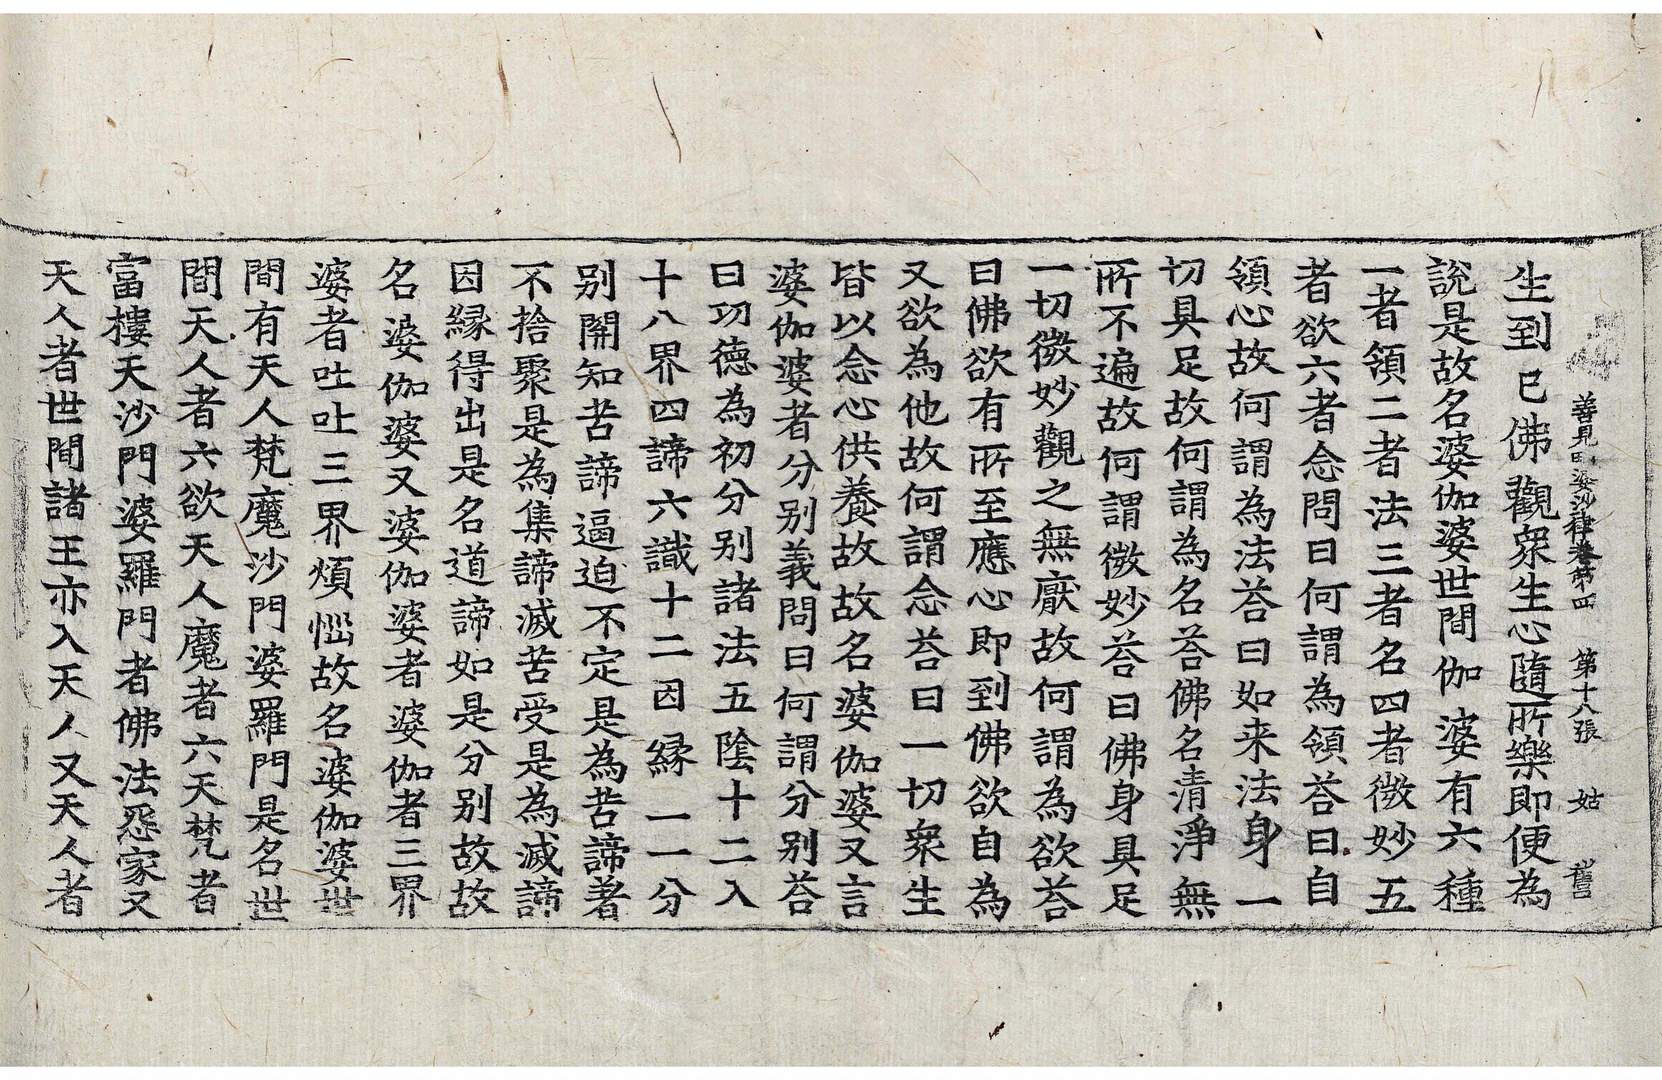 善見毗婆沙律卷第四 第十八張 姑
生到已佛觀衆生心隨所樂即便為
說是故名婆伽婆世間伽婆有六種
一者領二者法三者名四者微妙五
者欲六者念問曰何謂為領荅曰自
領心故何謂為法荅曰如来法身一
切具足故何謂為名荅佛名清淨無
所不遍故何謂微妙荅曰佛身具足
一切微妙觀之無厭故何謂為欲荅
曰佛欲有所至應心即到佛欲自為
又欲為他故何謂念荅曰一切衆生
皆以念心供養故故名婆伽婆又言
婆伽婆者分别義問曰何謂分别荅
曰功德為初分别諸法五陰十二入
十八界四諦六識十二因縁一一分
别開知苦諦逼迫不定是為苦諦著
不捨聚是為集諦滅苦受是為滅諦
因縁得出是名道諦如是分别故故
名婆伽婆又婆伽婆者婆伽者三界
婆者吐吐三界煩惱故名婆伽婆世
間有天人梵魔沙門婆羅門是名世
間天人者六欲天人魔者六天梵者
富樓天沙門婆羅門者佛法怨家又
天人者世間諸王亦入天人又天人者